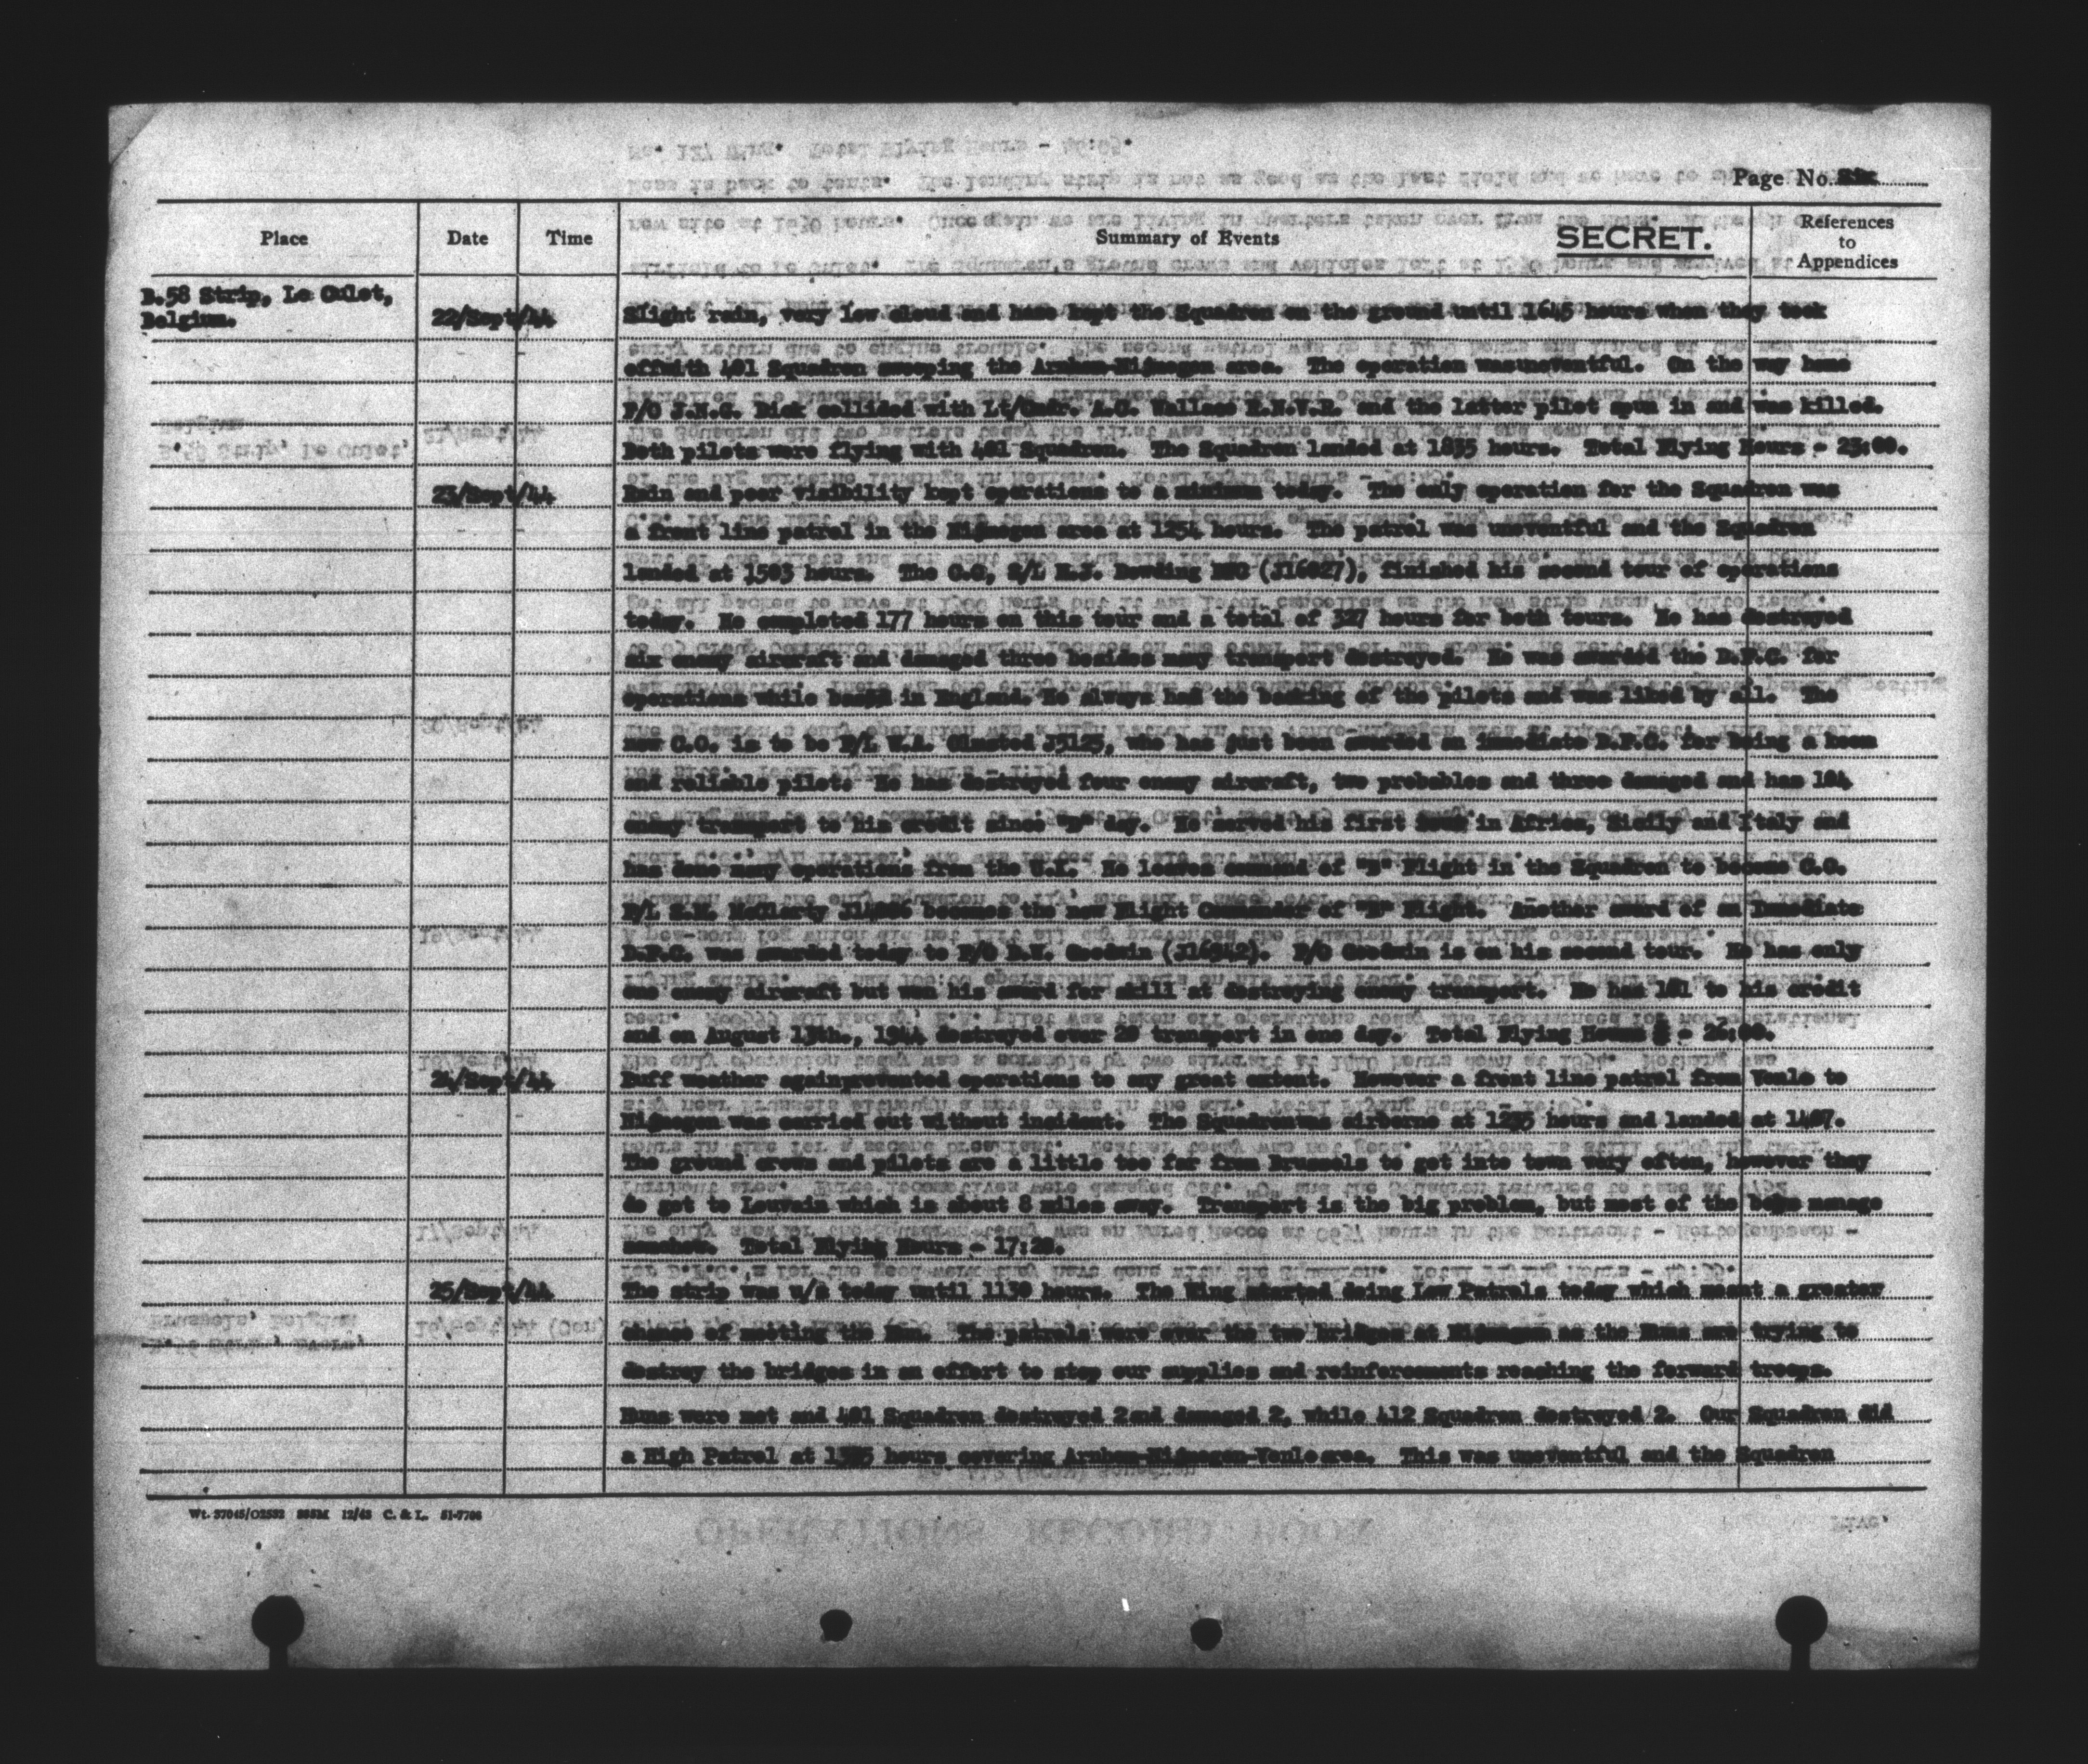 Page No. Six
Place Date Time Summary of Events SECRET. References to Appendices
B.58 Strip, Le Culot,
Belgium.
22/Sept/44 Slight rain, very low cloud and haze kept the Squadron on the ground until 1645 hours when they took
offwith 401 Squadron sweeping the Arnhem-Nijmegen area. The operation wasuneventful. On the way home
F/O J.N.G. Dick collided with Lt/Cmdr. A.C. Wallace R.N.V.R. and the latter pilot spun in and was killed.
Both pilots were flying with 401 Squadron. The Squadron landed at 1835 hours. Total Flying Hours - 23:00.
23/Sept/44 Rain and poor visibility kept operations to a minimum today. The only operation for the Squadron was
a front line patrol in the Nijmegen area at 1254 hours. The patrol was uneventful and the Squadron
landed at 1503 hours. The O.C, S/L H.J. Dowding DFC (J16027), finished his second tour of operations
today. He completed 177 hours on this tour and a total of 327 hours for both tours. He has destroyed
six enemy aircraft and damaged three besides many transport destroyed. He was awarded the D.F.C. for
operations while based in England. He always had the backing of the pilots and was liked by all. The
new C.O. is to be F/L W.A. Olmsted J5125, who has just been awarded an immediate D.F.C. for being a keen
and reliable pilot. He has destroyed four enemy aircraft, two probables and three damaged and has 104
enemy transport to his credit since "D" day. He served his first tour in Africa, Sicily and Italy and
has done many operations from the U.K. He leaves command of "B" Flight in the Squadron to become C.O.
F/L becomes the new Flight Commander of Flight. Another award of an immediate
D.F.C. was awarded today to F/O Goodwin (J16942). F/O Goodwin is on his second tour. He has only
one enemy aircraft but won his award for skill at destroying enemy transport. He has 101 to his credit
and on August 13th., 1944 destroyed over 20 transport in one day. Total Flying Hours - 26:00.
24/Sept/44 Duff weather againprevented operations to any great extent. However a front line patrol from Venlo to
Nijmegen was carried out without incident. The Squadronwas airborne at 1235 hours and landed at 1407.
The ground crews and pilots are a little too far from Brussels to get into town very often, however they
do get to Louvain which is about 8 miles away. Transport is the big problem, but most of the boys manage
somehow. Total Flying Hours - 17:20.
25/Sept/44 The strip was u/s today until 1130 hours. The Wing started doing Low Patrols today which meant a greater
chance of meeting the Hun. The patrols were over the two bridges at Nijmegen as the Huns are trying to
destroy the bridges in an effort to stop our supplies and reinforcements reaching the forward troops.
Huns were met and 401 Squadron destroyed 2and damaged 2, while 412 Squadron destroyed 2. Our Squadron did
a High Patrol at hours covering Arnhem-Nijmegen-Venloarea. This was uneventful and the Squadron
Wt. 37045/O2532 12/43 C. & L. 51-7706